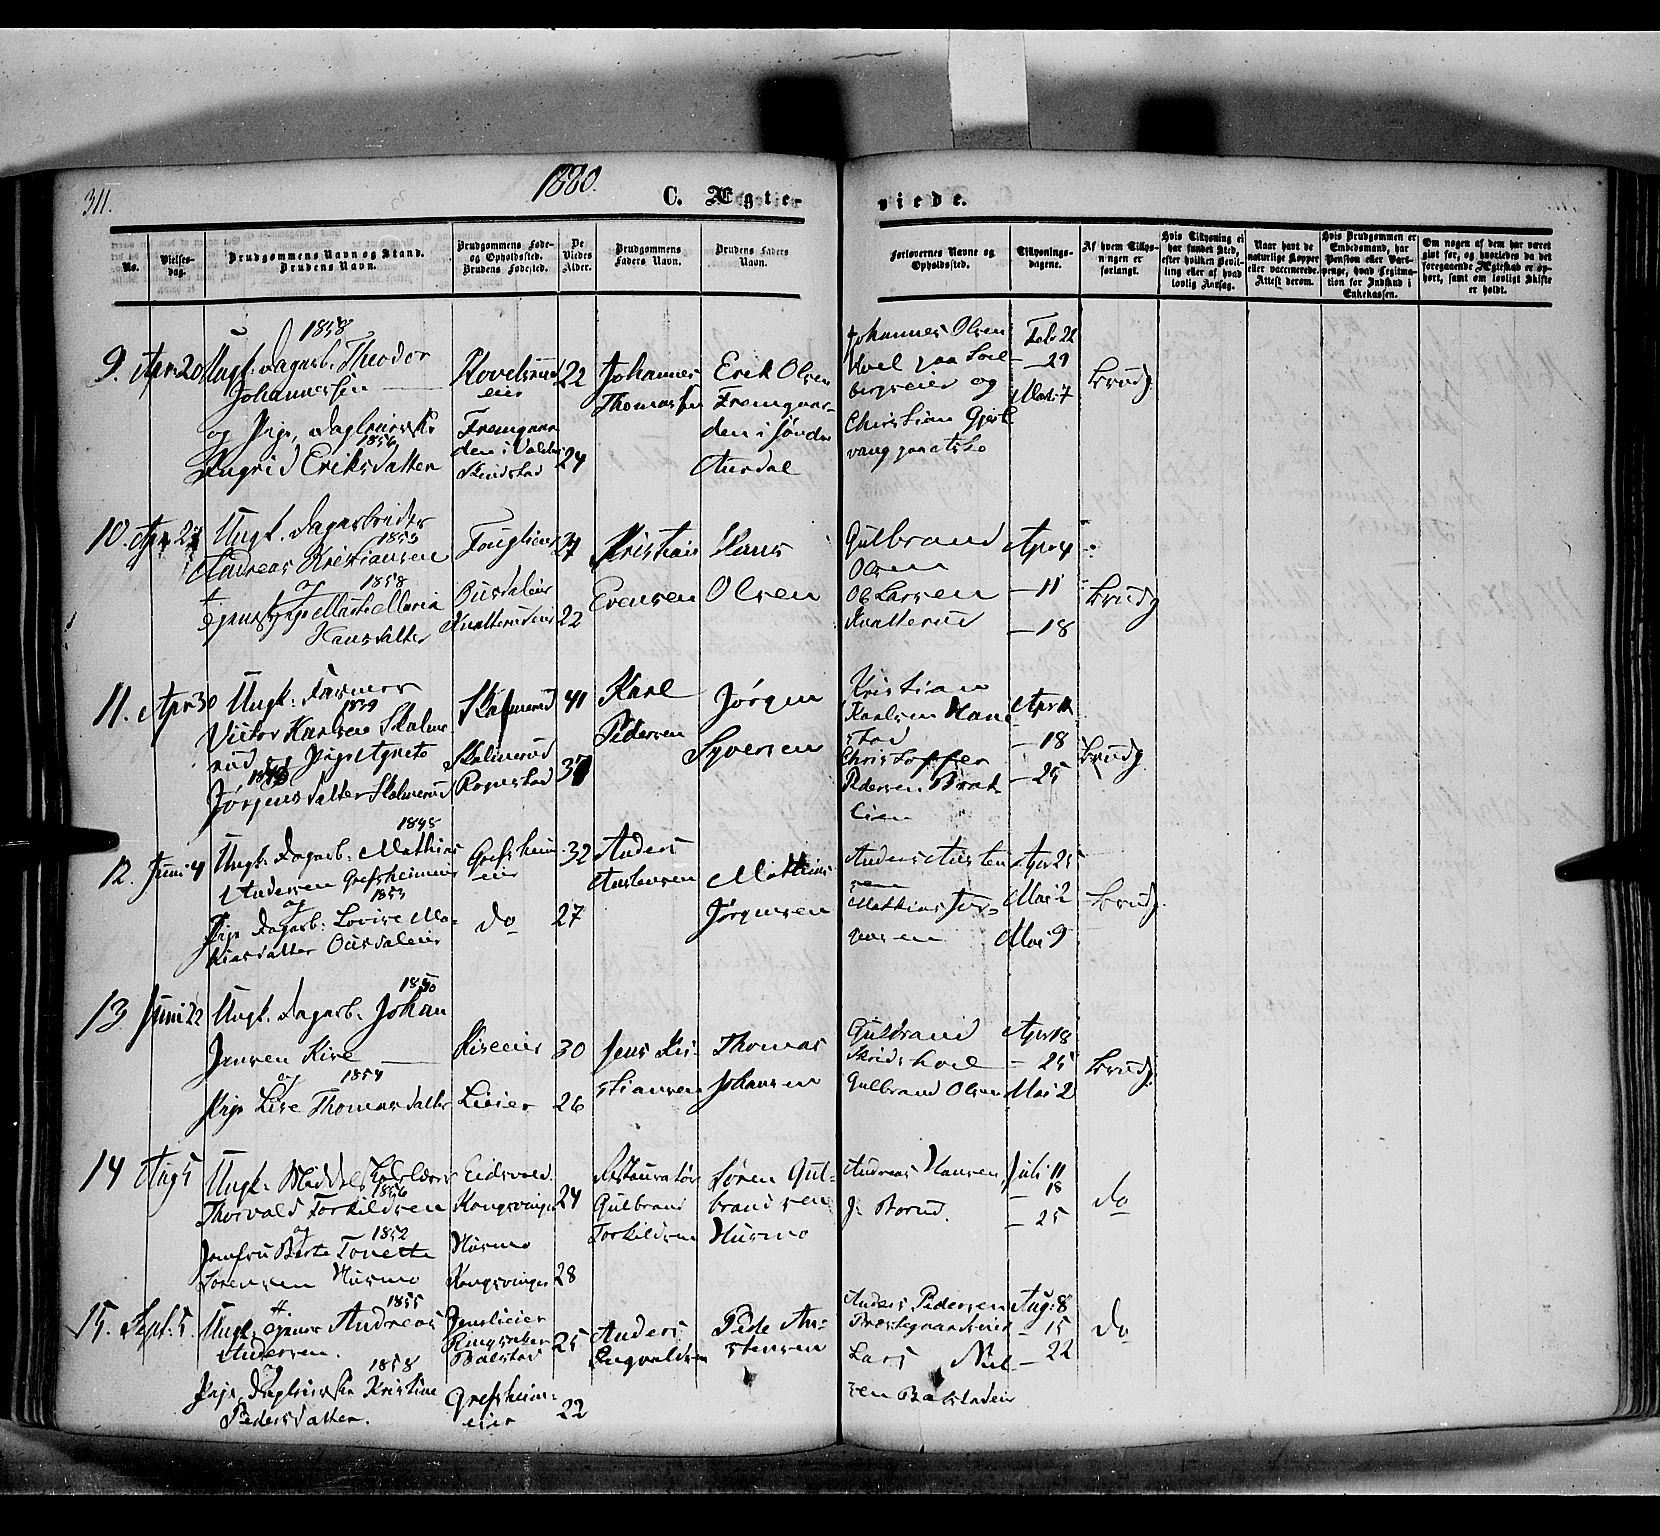 311.
1880.
C. Ægte-
viede.
No.
Vielses-
dag.
Brudgommens Navn og Stand.
Brudens Navn.
Brudgommens Føde-
og Opholdssted.
Brudens Fødested.
De
Viedes
Alder.
Brudgommens
Faders Navn.
Brudens Faders
Navn.
Forlovernes Navne og
Opholdssted.
Tillysnings-
dagene.
Af hvem Tillys-
ningen er
forlangt.
Hvis Tillysning ei
har fundet Sted,
efter hvilken Bevil-
ling eller af hvad
lovlig Aarsag.
Naar havt de
naturlige Kopper
eller vaccinerede.
Attest derom.
Hvis Brudgommen er
Embedsmand, har
Pension eller Vart-
penge, hvad Legitima-
tion for Indskud i
Enkekassen.
Om nogen af dem har været
givt før, og hvorledes da det
foregaaende Ægteskab er op-
hørt, samt om lovligt Skifte
er holdt.
9. Apr. 20
1858
Ungk. Dagarb. Theodor
Johannessen
og Pige,
1856
Ingrid Eriksdatter
eier
Fremgaar
den i Valders
22
24
Johannes
Thomassen
Erik Olsen
Fremgaar-
den i Søndre
Aurdal
Johannes Olsen
Hoel paa
bergseier og
Christian
Feb. 22
- 29
Mar. 7
Brudg.
10. Apr. 27
Ungk. Dagarbeider
1853
Andreas Kristiansen
og 1858
Pige Marthe Maria
Hansdatter
22
Kristian
Evensen
Hans
Olsen
Gulbrand
Olsen
Ole Larsen
Knatterud
Apr. 4
- 11
- 18
Brudg
11. Apr. 30
Ungk. Farmer
1839
Victor Karlsen Skalme
rud Pige Agnete
Jørgensdatter Skalmerud
Skalmerud
Skalmerud
41
37
Karl
Pedersen
Jørgen
Syversen
Kristian
Karlsen Hane
stad
Christoffer
Pedersen Brat
lien
Apr. 11
- 18
- 25
Brudg.
12. Juni 4
1848
Ungk. Dagarb. Mathias
Andersen Grefsheimeie
og 1853
Pige Dagarb. Lovise Ma-
thiasdatter Ousdaleie
Grefsheim-
eier
do
32
27
Anders
Mathias
Jørgensen
Anders Austen
sen
Mathias Jør-
gensen
Apr. 25
Mai 2
Mai 9
Brudg.
13 Juni 22
1850
Ungk. Dagarb. Johan
Jensen Kise
og 1854
Pige Lise Thomasdatter
Kiseeier
Lieier
30
26
Jens Kri-
stiansen
Thomas
Johansen
Gulbrand
Gulbrand Olsen
Apr. 18
- 25
Mai 2
Brudg.
14 Aug 5
Ungk. Middelskolelærer
1856
Thorvald Torkildsen
og 1852
Jomfru Berte Tonette
Sørensen Husmo
Eidsvold.
Kongsvinger
Husmo
Kongsvinger
24
28
Restauratør
Gulbrand
Torkildsen
Søren Gul-
brandsen
Husmo
Andreas Hansen
J. Borud.
Juli 11
- 18
- 25
do
15. Sept. 5.
1855
Ungk. Andreas
Andersen.
og 1858
Pige, Kristine
Pedersdatter.
Ringsaker
Grefsheim-
eier
25
22
Anders
Engvaldsen
Peder An-
stensen
Anders Pedersen
Præstegaardseier
Lars Nil-
sen
Aug. 8
- 15
- 22
do